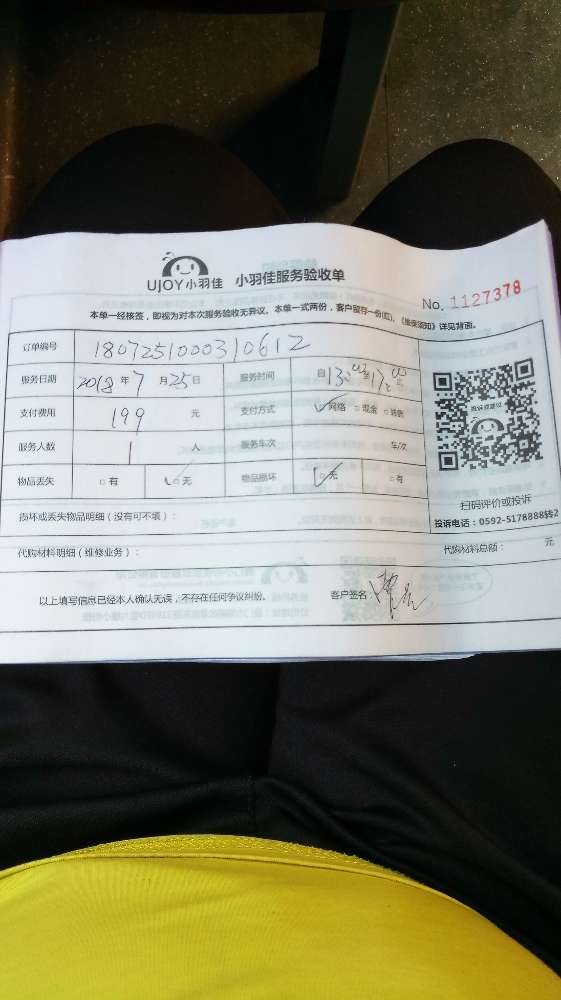 UJOY小羽佳 小羽佳服务验收单
No. 1127378
本单一经核签，即视为对本次服务验收无异议，本单一式两份，客户留存一份(红)，《维保须知》详见背面。
订单编号 180725100031061 2
服务日期 2018 年 7 月 25 日 服务时间 自 13:00 至 17:00
支付费用 199 元 支付方式 网络 现金
服务人数 1 人 服务车次 车/次
物品丢失 有 无 物品损坏 无 有
扫码评价或投诉
损坏或丢失物品明细（没有可不填）： 投诉电话：0592-5178888转2
代购材料明细（维修业务）： 代购材料总额： 元
以上填写信息已经本人确认无误，不存在任何争议纠纷。 客户签名：